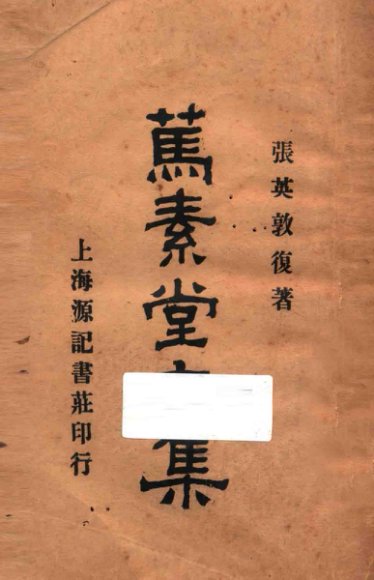 張英敦復著
篤素堂集
上海源記書莊印行